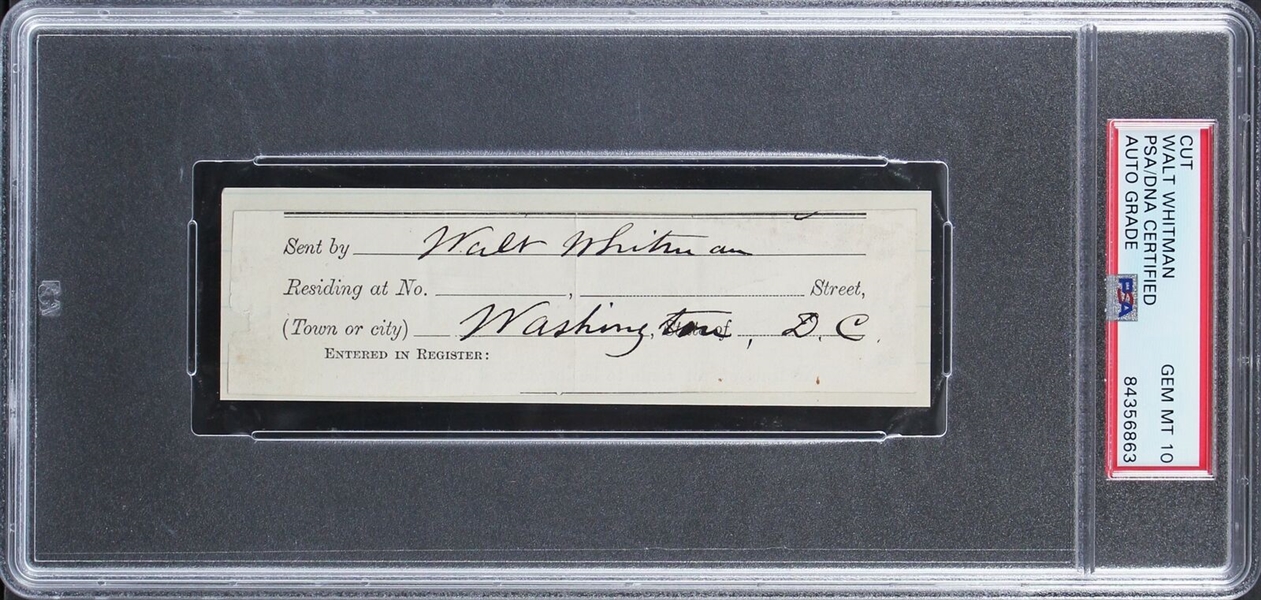 Sent by Walt Whitman
Residing at No. , Street,
(Town or city) Washington, D.C.
ENTERED IN REGISTER:
CUT
WALT WHITMAN
PSA/DNA CERTIFIED
AUTO GRADE GEM MT 10
84356863
PSA